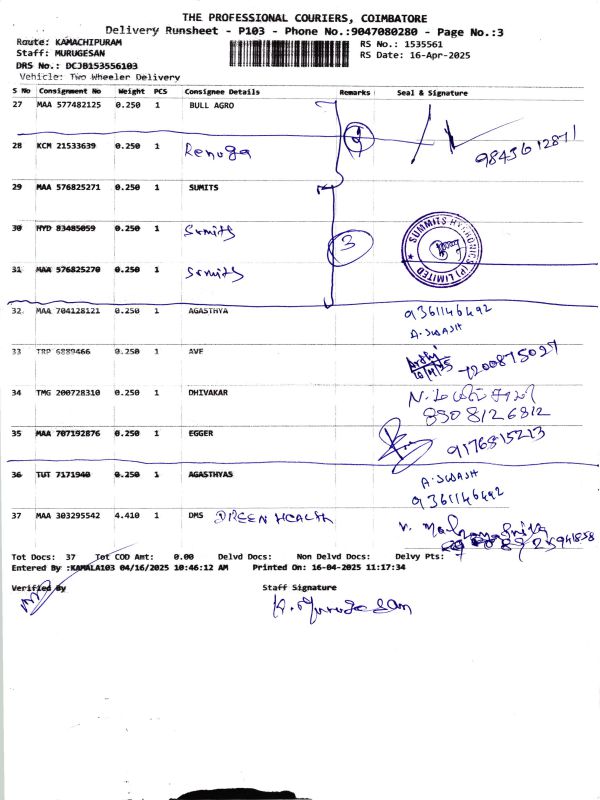 THE PROFESSIONAL COURIERS, COIMBATORE
Delivery Runsheet - P103 - Phone No.:9047080280 - Page No.:3
Route: KAMACHIPURAM RS No.: 1535561
Staff: MURUGESAN RS Date: 16-Apr-2025
DRS No.: DCJB153556103
Vehicle: Two Wheeler Delivery
S No Consignment No Weight PCS Consignee Details Remarks Seal & Signature
27 MAA 577482125 0.250 1 BULL AGRO
28 KCM 21533639 0.250 1 Renuga 9843612871
29 MAA 576825271 0.250 1 SUMITS
30 HYD 83485059 0.250 1 Sumits 3 SUMMITS HYGRONICS (P) LIMITED
31 MAA 576825270 0.250 1 Sumits
32 MAA 704128121 0.250 1 AGASTHYA 9361146492
A. SWASH
33 TRP 6889466 0.250 1 AVE 7200875027
34 TMG 200728310 0.250 1 DHIVAKAR
8508126812
35 MAA 707192876 0.250 1 EGGER 9176815213
36 TUT 7171940 0.250 1 AGASTHYAS A. SWASH
9361146492
37 MAA 303295542 4.410 1 DMS GREEN HEALTH
Tot Docs: 37 Tot COD Amt: 0.00 Delvd Docs: Non Delvd Docs: Delvy Pts:
Entered By :KAMALA103 04/16/2025 10:46:12 AM Printed On: 16-04-2025 11:17:34
Verified By Staff Signature
K. Murugesan